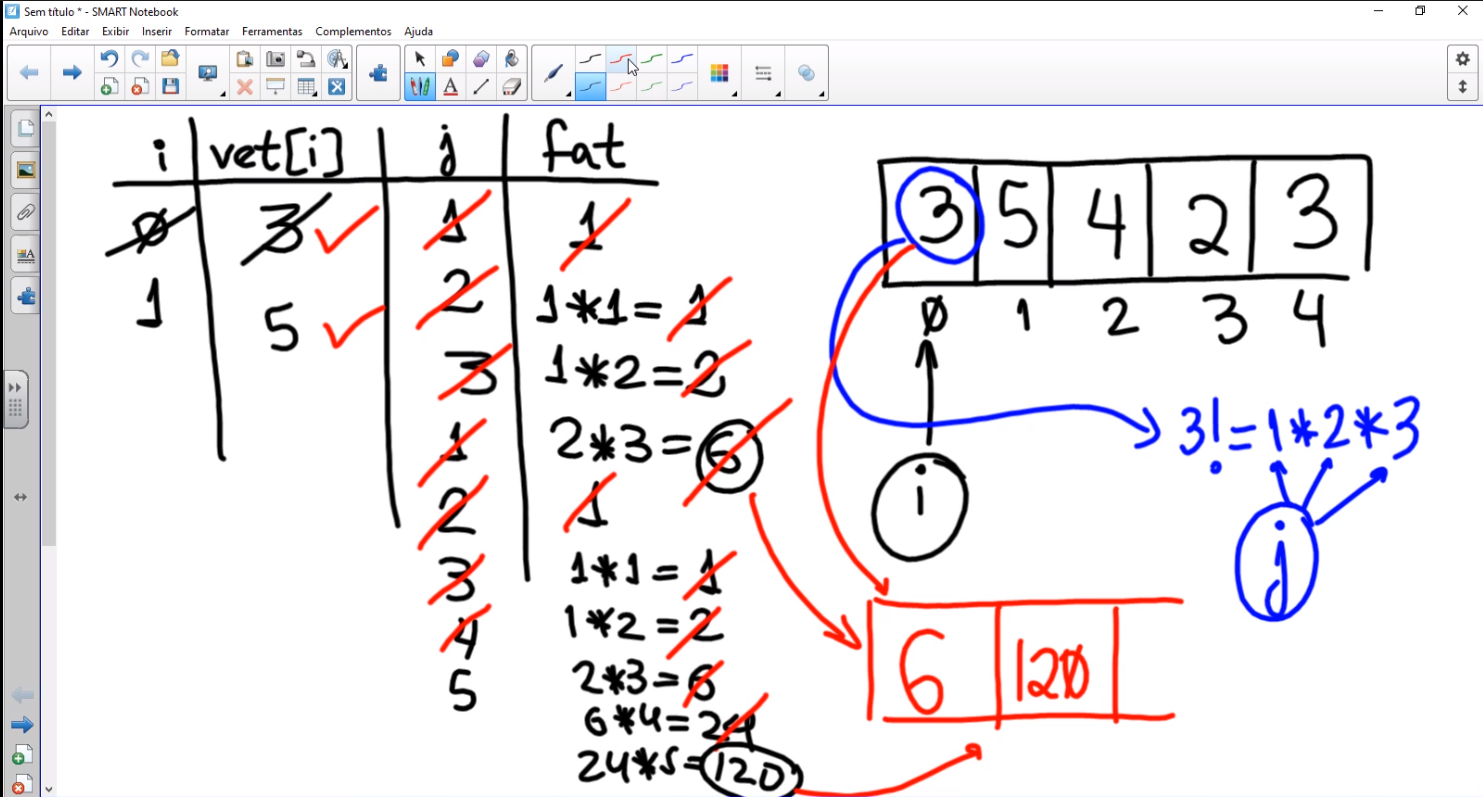 Sem título * - SMART Notebook
Arquivo Editar Exibir Inserir Formatar Ferramentas Complementos Ajuda
i vet[i] j fat
0 3 1 1
1 5 2 1*1=1
3 1*2=2
1 2*3=6
2 1
3 1*1=1
4 1*2=2
5 2*3=6
6*4=24
24*5=120
3 5 4 2 3
0 1 2 3 4
3!=1*2*3
i
j
6 120